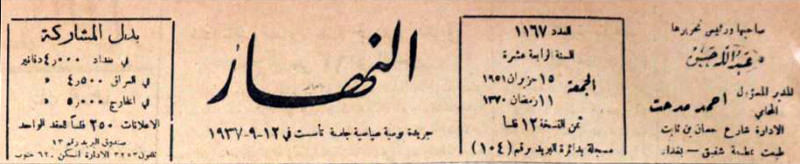 صاحبها ورئيس تحريرها
عبدالله حسن
المدير المسؤول
المحامي احمد مدحت
الادارة شارع حسان بن ثابت
طبعت بمطبعة شفيق - بغداد
العدد ١١٦٧
السنة الرابعة عشرة
الجمعة
١٥ حزيران ١٩٥١
١١ رمضان ١٣٧٠
ثمن النسخة ١٢ فلسا
مسجلة بدائرة البريد برقم (١٠٤)
النهار
جريدة يومية سياسية جامعة تأسست في ١٢-٩-١٩٣٧
بدل المشاركة
في بغداد ٤٫٠٠٠ دنانير
في العراق ٤٫٥٠٠ »
في الخارج ٥٫٠٠٠ »
الاعلانات ٢٥٠ فلساً العقد الواحد
صندوق البريد رقم ١٣
تلفون ٣٢٥٣ الادارة المسكن ٦٢ جنوب